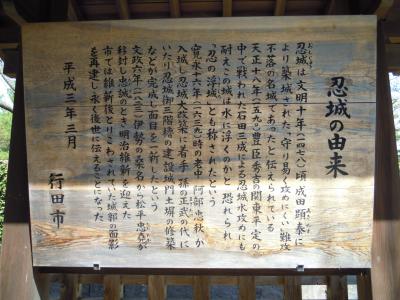 忍城の由来
忍城は文明十年(一四七八)頃成田顕泰に
より築城された、守り易く攻めにくい難攻
不落の名城であったと伝えられている
天正十八年(一五九〇)豊臣秀吉の関東平定の
中で戦われた石田三成による忍城水攻めにも
耐えこの城は水に浮くのかと恐れられ
「忍の浮城」とも称されたという
寛永十六年(一六三九)時の老中 阿部忠秋が
入城し忍城大改築に着手孫の正武の代に
いたり忍城御三階櫓の建設城門土塀の修築
などが完成し面目を一新したという
文政六年(一八二三)伊勢の桑名から松平忠堯が
移封し忠誠のとき明治維新を迎えた
市では維新後とりこわされていた城郭の面影
を再建し永く後世に伝えることになった
平成三年三月
行田市